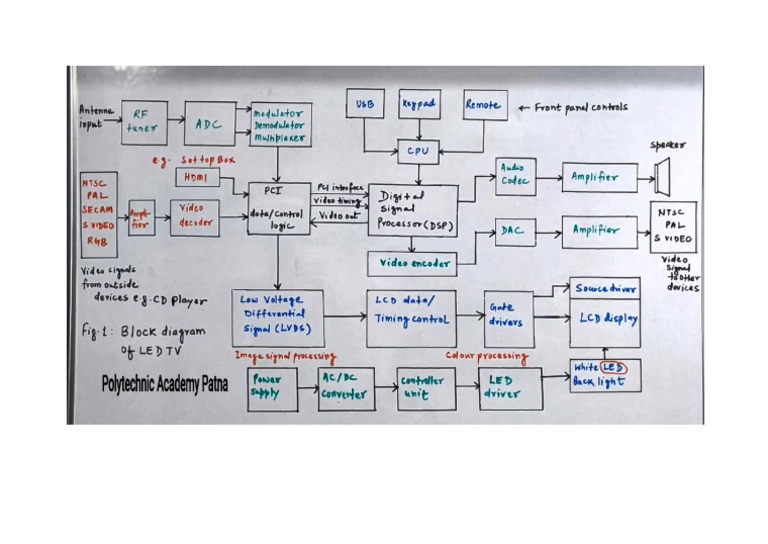 Antenna
input
RF
tuner
ADC
modulator
Demodulator
Multiplexer
USB
Keypad
Remote
← Front panel controls
CPU
e.g. Set top Box
HDMI
NTSC
PAL
SECAM
S VIDEO
RGB
Ampli-
fier
Video
decoder
PCI
data/control
logic
PCI interface
Video timing
Video out
Digital
Signal
Processor (DSP)
Audio
Codec
Amplifier
Speaker
DAC
Amplifier
NTSC
PAL
S VIDEO
Video
Signal
to other
devices
Video encoder
Video signals
from outside
devices e.g. CD player
Fig-1: Block diagram
of LED TV
Low Voltage
Differential
Signal (LVDS)
LCD data/
Timing control
Gate
drivers
Source driver
LCD display
Image signal processing
Colour processing
Polytechnic Academy Patna
Power
supply
AC/DC
converter
Controller
unit
LED
driver
White LED
Back light